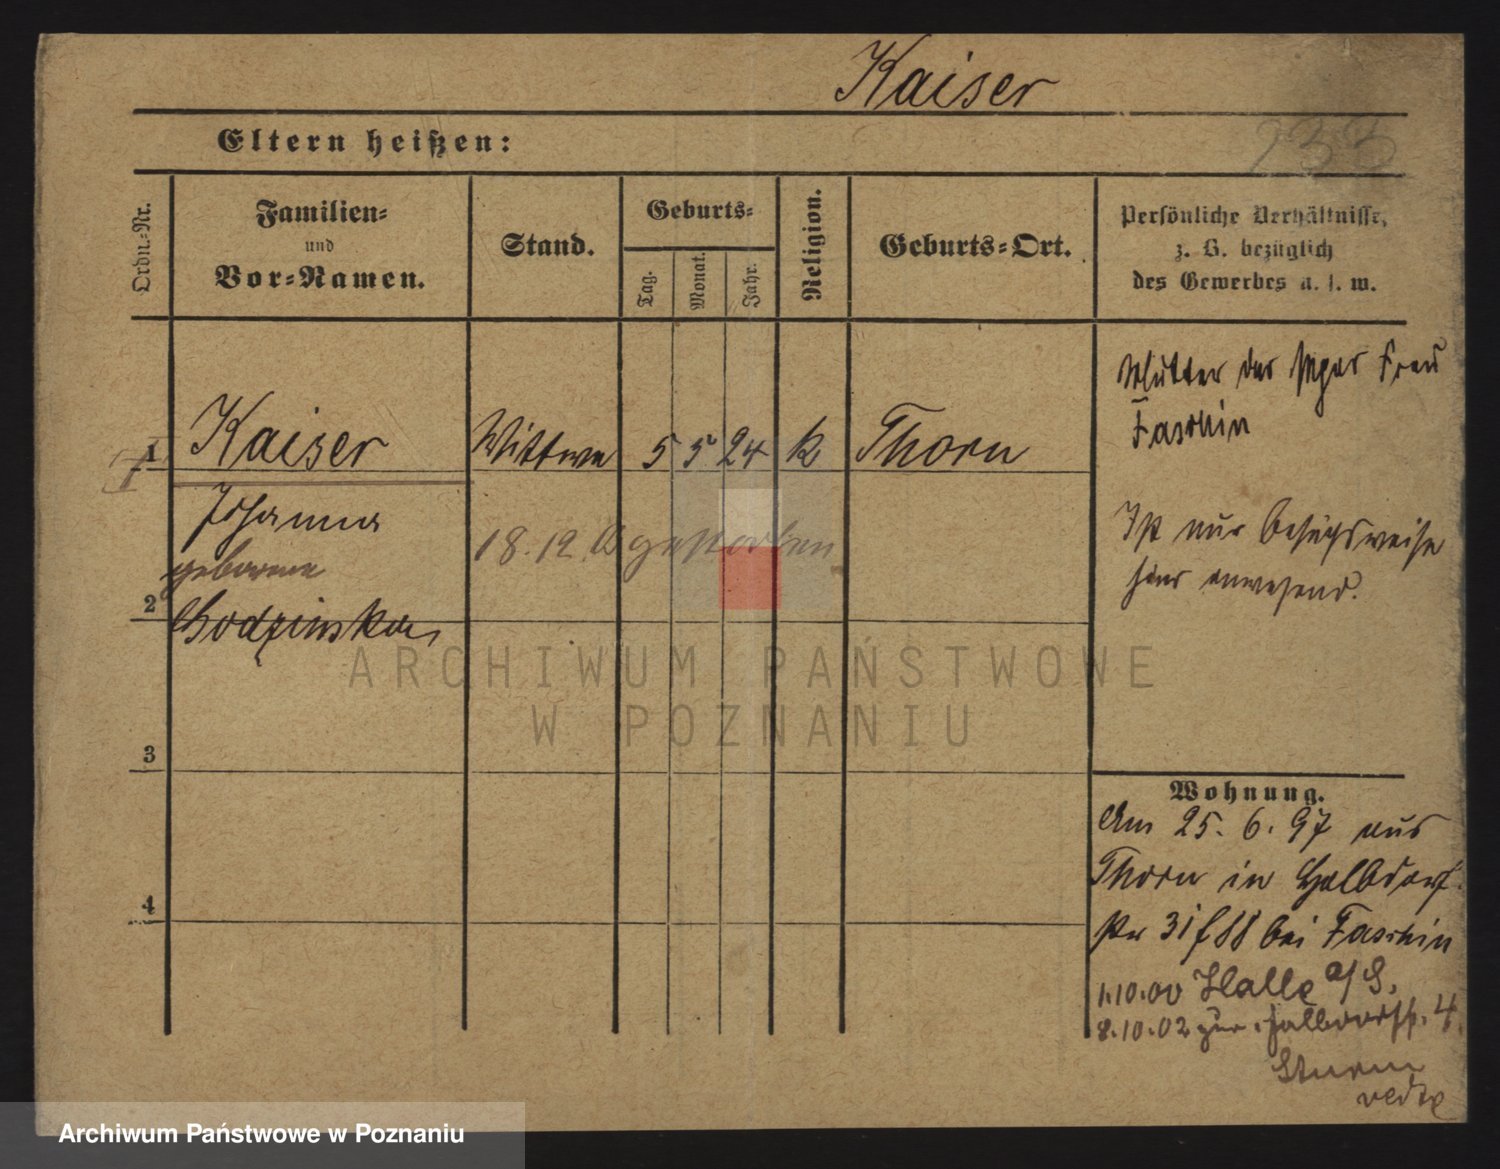 Kaiser
Eltern heißen:
233
Ordn.-Nr.
Familien-
und
Vor-Namen.
Stand.
Geburts-
Tag.
Monat.
Jahr.
Religion.
Geburts-Ort.
Persönliche Verhältnisse,
z. B. bezüglich
des Gewerbes u. s. w.
1 Kaiser Wittwe 5 5 24 k Thorn
Johanna
geborene
18.12. gestorben
2
Mutter der Frau
Faschin
Ist nur besuchsweise
hier anwesend.
ARCHIWUM PAŃSTWOWE
W POZNANIU
3
Wohnung.
Am 25. 6. 97 aus
Thorn in Halbdorf-
str 31 bei Faschin
1.10.00 Halle a/S.
8.10.02 zur. Halbdorfstr. 4
4
Archiwum Państwowe w Poznaniu